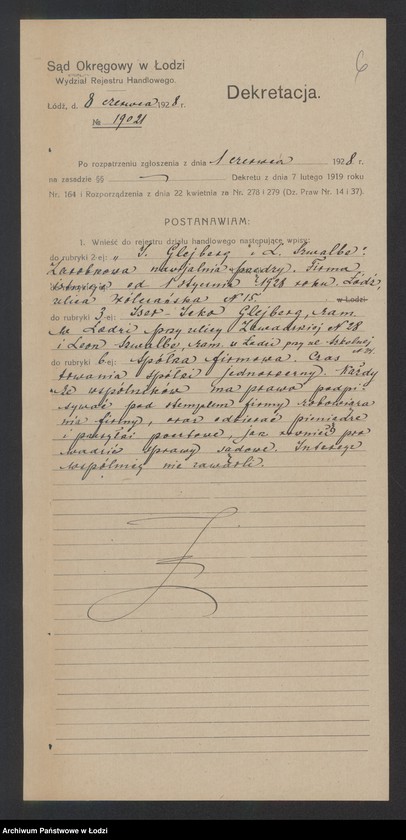 6
Sąd Okręgowy w Łodzi
Wydział Rejestru Handlowego.
Dekretacja.
Łódź, d. 8 czerwca 1928 r.
№ 19021
Po rozpatrzeniu zgłoszenia z dnia 1 czerwca 1928 r.
na zasadzie §§ — Dekretu z dnia 7 lutego 1919 roku
Nr. 164 i Rozporządzenia z dnia 22 kwietnia za Nr. 278 i 279 (Dz. Praw Nr. 14 i 37).
POSTANAWIAM:
1. Wnieść do rejestru działu handlowego następujące wpisy:
do rubryki 2-ej: „I. Glejberg i L. Szwalbe".
Zarobkowa nawijalnia przędzy. Firma
istnieje od 1 stycznia 1928 roku. Łódź,
ulica Kilińskiego № 15. w Łodzi
do rubryki 3-ej: Icek Glejberg, zam.
w Łodzi przy ulicy Zawadzkiej № 28
i Leon Szwalbe, zam. w Łodzi przy ul.
do rubryki 6-ej: Spółka firmowa. Czas
trwania spółki jednoroczny. Każdy
ze wspólników ma prawo podpi-
sywać pod stemplem firmy zobowiąza
nia firmy, oraz odbierać pieniądze
i przesyłki pocztowe, jak również pro
wadzić sprawy sądowe. Intercyz
wspólnicy nie zawarli.
Archiwum Państwowe w Łodzi